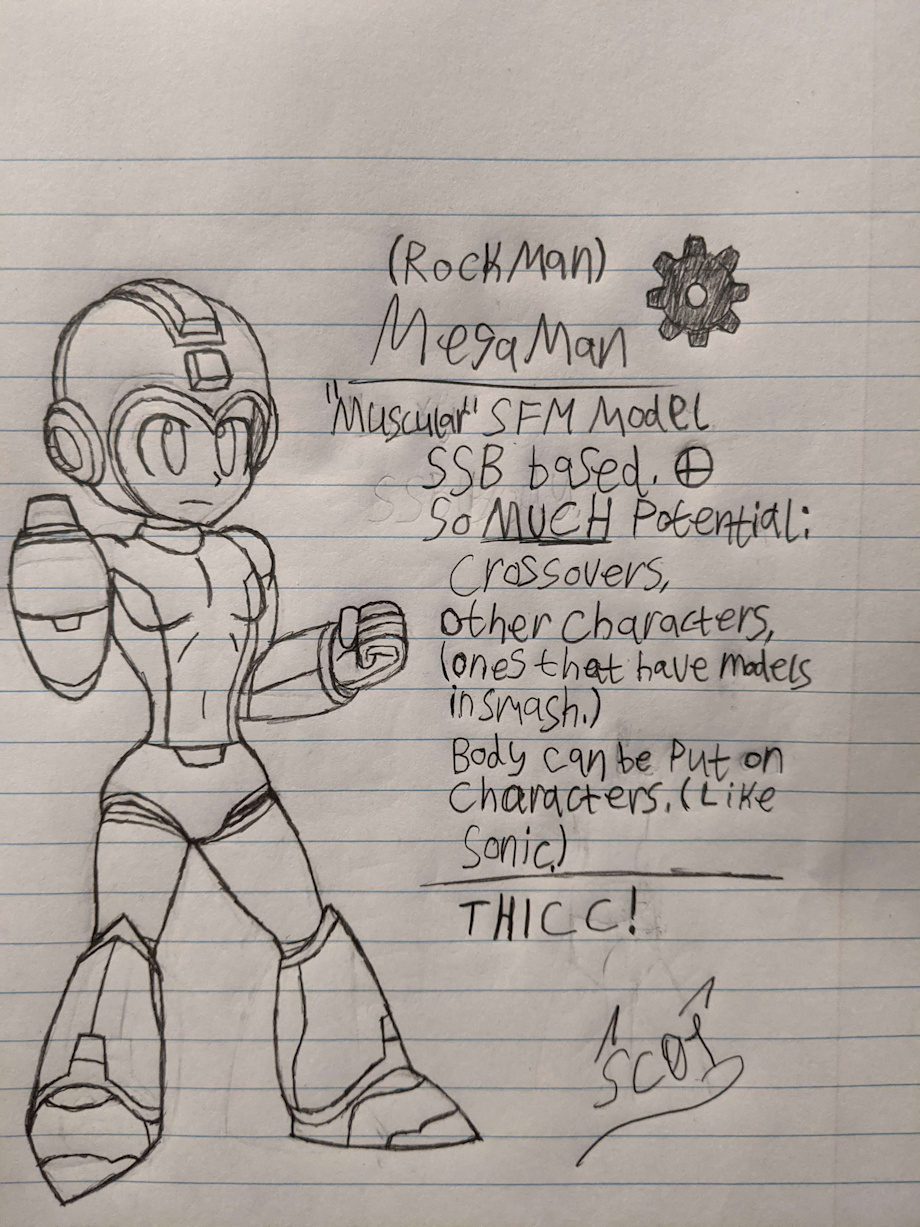 (RockMan)
MegaMan
"Muscular" SFM Model
SSB based.
So MUCH Potential:
Crossovers,
other characters,
(ones that have models
in smash.)
Body can be Put on
Characters. (Like
Sonic.)
THICC!